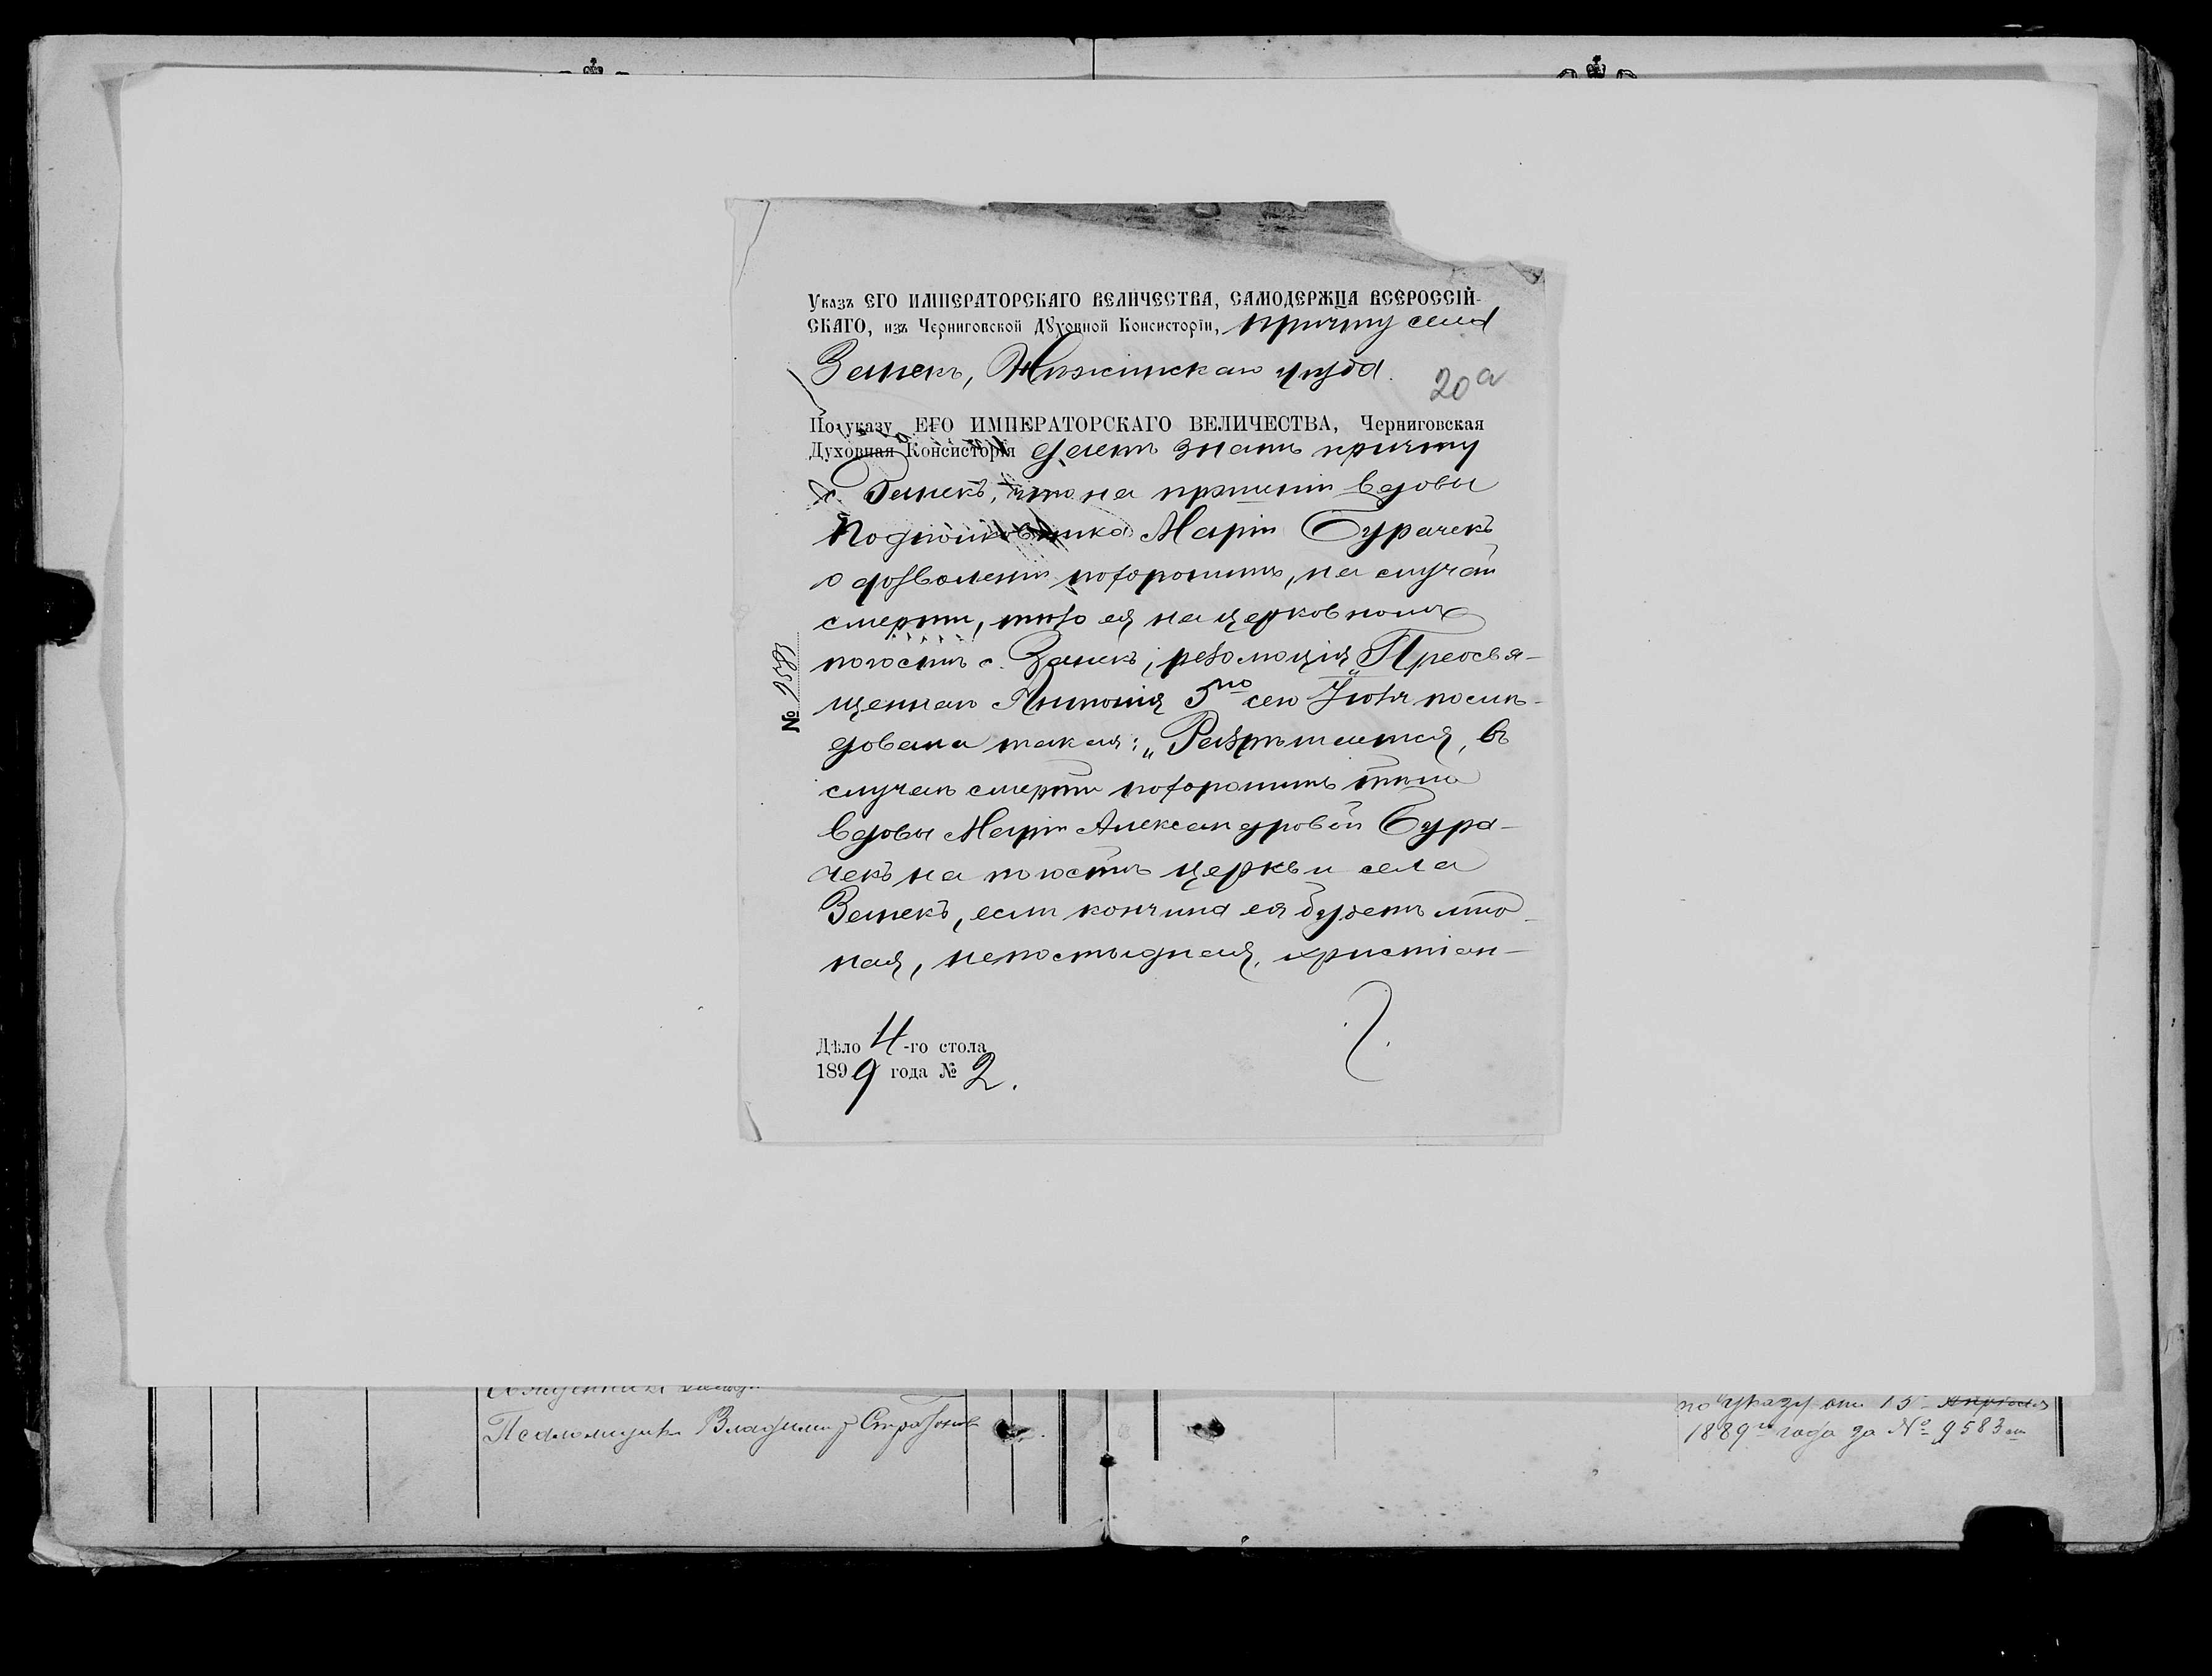 Указъ ЕГО ИМПЕРАТОРСКАГО ВЕЛИЧЕСТВА, САМОДЕРЖЦА ВСЕРОССІЙ-
СКАГО, изъ Черниговской Дꙋховной Консисторіи, причту села
Занекъ, Нѣжинскаго уѣзда.
20а
По указу ЕГО ИМПЕРАТОРСКАГО ВЕЛИЧЕСТВА, Черниговская
Духовная Консисторія даетъ знать причту
с. Занекъ, что на прошеніи вдовы
Подполковника Маріи Бурачекъ
о дозволеніи похоронить, на случай
смерти, тѣло ея на церковномъ
погостѣ с. Занекъ, резолюція Преосвя-
щеннаго Антонія 5го сего Іюля послѣ-
дована такая: „Разрѣшается, въ
случаѣ смерти похоронить тѣло
вдовы Маріи Александровой Бура-
чекъ на погостѣ церкви села
Занекъ, если кончина ея будетъ мир-
ная, непостыдная, христіан-
№ 9583
Дѣло 4-го стола
1899 года № 2.
Псаломщикъ Владимиръ
по указу отъ 15
1889го года за № 9583